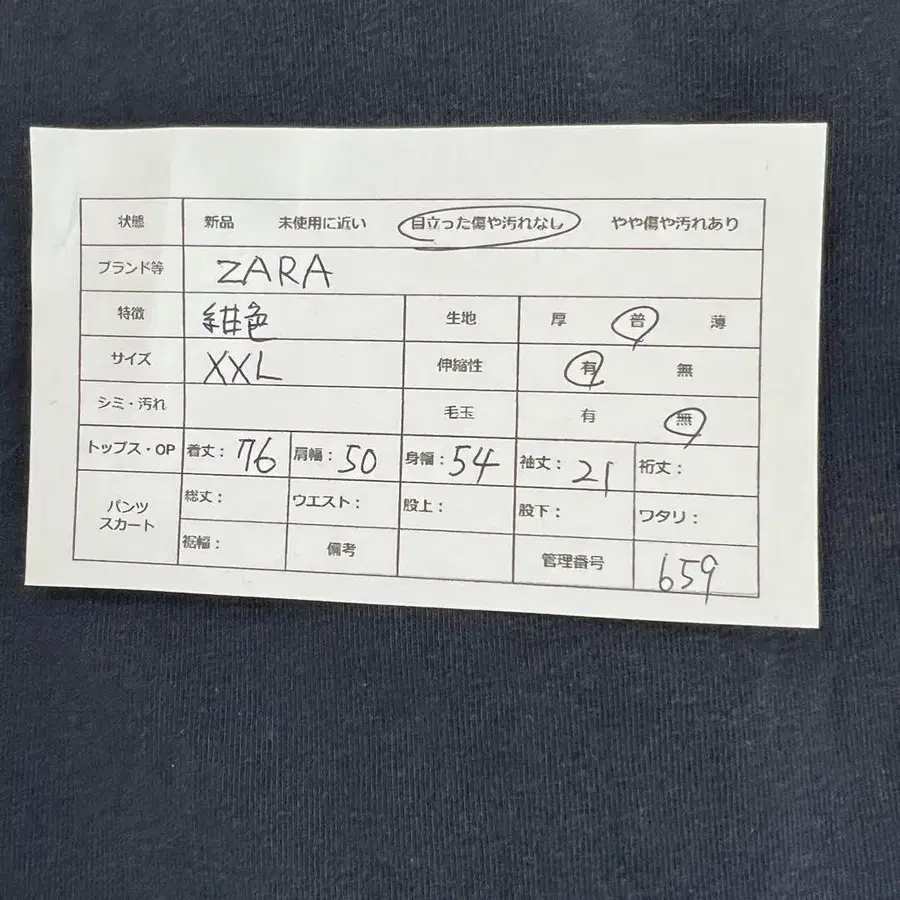 状態 新品 未使用に近い 目立った傷や汚れなし やや傷や汚れあり
ブランド等 ZARA
特徴 紺色 生地 厚 普 薄
サイズ XXL 伸縮性 有 無
シミ・汚れ 毛玉 有 無
トップス・OP 着丈: 76 肩幅: 50 身幅: 54 袖丈: 21 裄丈:
パンツ スカート 総丈: ウエスト: 股上: 股下: ワタリ:
裾幅: 備考 管理番号 659